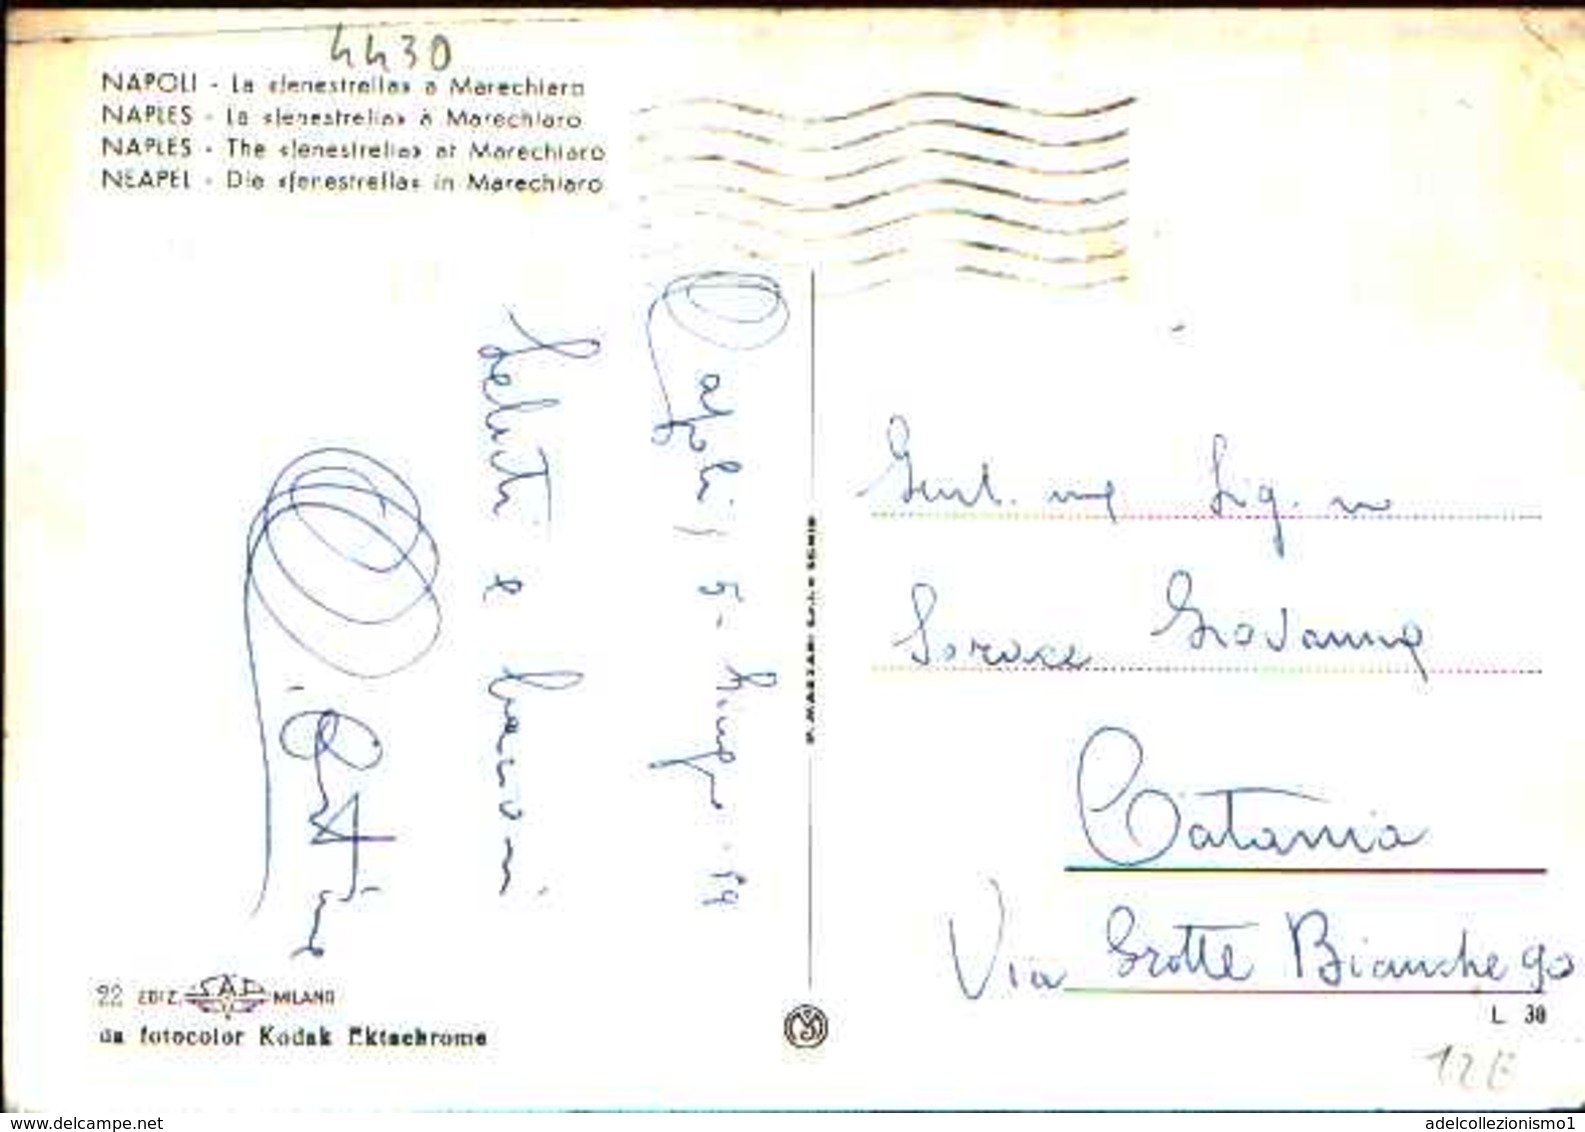 4430
NAPOLI - La «fenestrella» a Marechiaro
NAPLES - La «fenestrella» à Marechiaro
NAPLES - The «fenestrella» at Marechiaro
NEAPEL - Die «fenestrella» in Marechiaro
Napoli, 5-
Saluti e bacioni
Gent. Sig. na
Sorace Giovanna
Catania
Via Grotte Bianche 90
22 EDIZ. SAD MILANO
da fotocolor Kodak Ektachrome
L 30
12E
www.delcampe.net
adelcollezionismo1